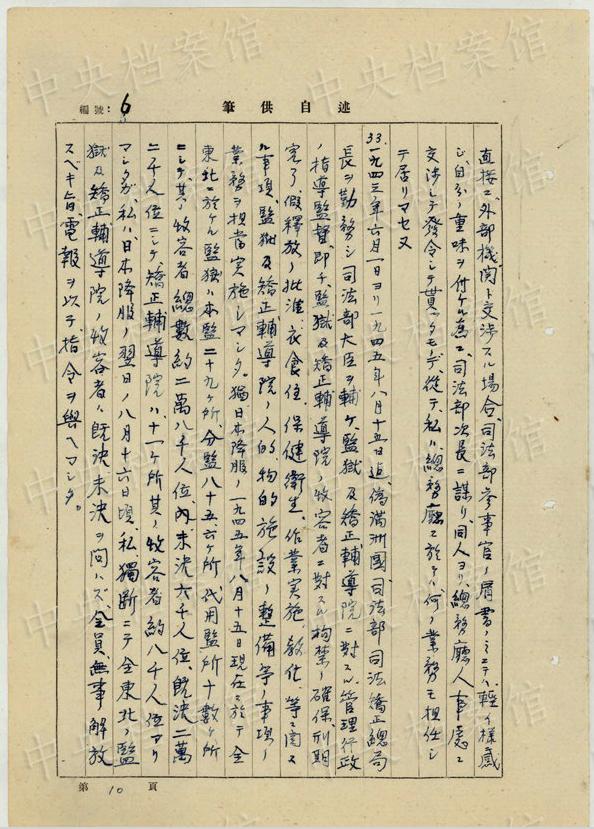 中央档案馆
編號：6
筆供自述
直接ニ外部機関ト交渉スル場合、司法部参事官ノ肩書ノミニテハ、軽イ様感
ジ、自分ノ重味ヲ付ケル為ニ、司法部次長ニ謀リ、同人ヨリ、総務廳人事處ニ
交渉シテ発令シテ貰ッタモノデ、従テ、私ハ、総務廳ニ於テハ何ノ業務モ担任シ
テ居リマセヌ
33.一九四三年六月一日ヨリ一九四五年八月十五日迄、偽満洲國司法部司法矯正総局
長ヲ勤務シ司法部大臣ヲ輔ケ、監獄及矯正輔導院ニ対スル管理行政
ノ指導監督、即チ、監獄及矯正輔導院ノ收容者ニ対スル拘禁ノ確保、刑期
完了、假釋放ノ批准、衣食住、保健衛生、作業実施、教化、等ニ関ス
ル事項、監獄及矯正輔導院ノ人的物的施設ノ整備等ノ事項ノ
業務ヲ担当実施シマシタ。猶日本降服ノ一九四五年八月十五日現在ニ於テ全
東北ニ於ケル監獄ハ本監二十九ヶ所、分監八十五、六ヶ所代用監所十数ヶ所
ニシテ、其ノ收容者總數約二萬八千人位、内未決六千人位、既決二萬
二千人位ニシテ、矯正輔導院ハ、十一ヶ所其ノ收容者約八千人位アリ
マシタガ、私ハ、日本降服ノ翌日ノ八月十六日頃、私獨断ニテ全東北ノ監
獄及矯正輔導院ノ收容者ハ既決未決ヲ問ハズ、全員、無事解放
スベキ旨、電報ヲ以テ指令ヲ與ヘマシタ。
第 10 頁